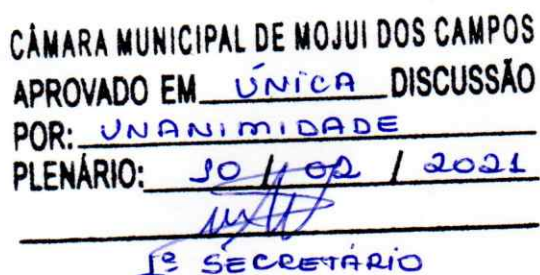 CÂMARA MUNICIPAL DE MOJUI DOS CAMPOS
APROVADO EM ÚNICA DISCUSSÃO
POR: UNANIMIDADE
PLENÁRIO: 10 / 02 / 2021
1º SECRETÁRIO